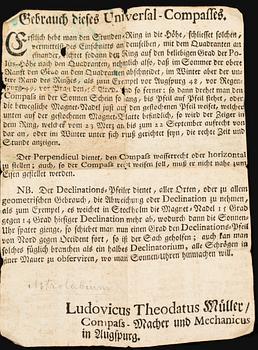 Gebrauch dieses Universal-Compasses.
Erstlich hebt man den Stunden-Ring in die Höhe, schliesset solchen
vermittelst des Einschnitts an demselben, mit dem Quadranten an
einander, richtet sodann den Ring auf den beliebigen Grad der Po-
lus-Höhe nach den Quadranten, nehmlich also, daß im Sommer der obere
Ranfft den Grad an dem Quadranten abschneidet, im Winter aber der un-
tere Rand des Ringes, als zum Exempel vor Augspurg 48, vor Regen-
spurg 49, vor Prag 50, Grad und so ferner; so dann drehet man den
Compass in der Sonnen Schein so lang, bis Pfeil auf Pfeil stehet,
die bewegliche Magnet-Nadel just auf den gestochenen Pfeil weiset, welcher
unten auf der gestochenen Magnet-Platte befindlich, so wird der Zeiger in
dem Ring, welcher vom 23 Mertz an bis zum 22 September aufrecht
dar an, oder im Winter unter sich muß gerichtet seyn, die rechte Zeit und
Stunde anzeigen.
Der Perpendicul dienet, den Compass wasserrecht oder horizontal
zu stellen; auch, so der Compass recht weisen soll, muß er nicht nahe zum
Eisen gestellet werden.
NB. Der Declinations-Pfeiler dienet, aller Orten, oder zu allem
geometrischen Gebrauch, die Abweichung oder Declination zu nehmen,
als zum Exempel, es weichet in Stockholm die Magnet-Nadel 15 Grad
gegen 14 Grad hiesiger Declination mehr ab, wodurch dann die Sonnen-
Uhr später gienge, so schiebet man nur einen Grad den Declinations-Pfeil
von Nord gegen Occident fort, so ist der Sach geholfen; auch kan man
solches füglich brauchen als ein halbes Declinatorium, alle Schrägen in
der Mauer zu observiren, wo man Sonnen-Uhren hinmachen will.
Astrolabium
Ludovicus Theodatus Müller/
Compass-Macher und Mechanicus
in Augspurg.